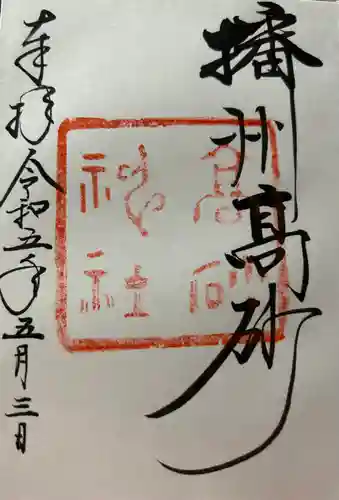 播州高砂
高砂
神社
奉拝
令和五年五月三日